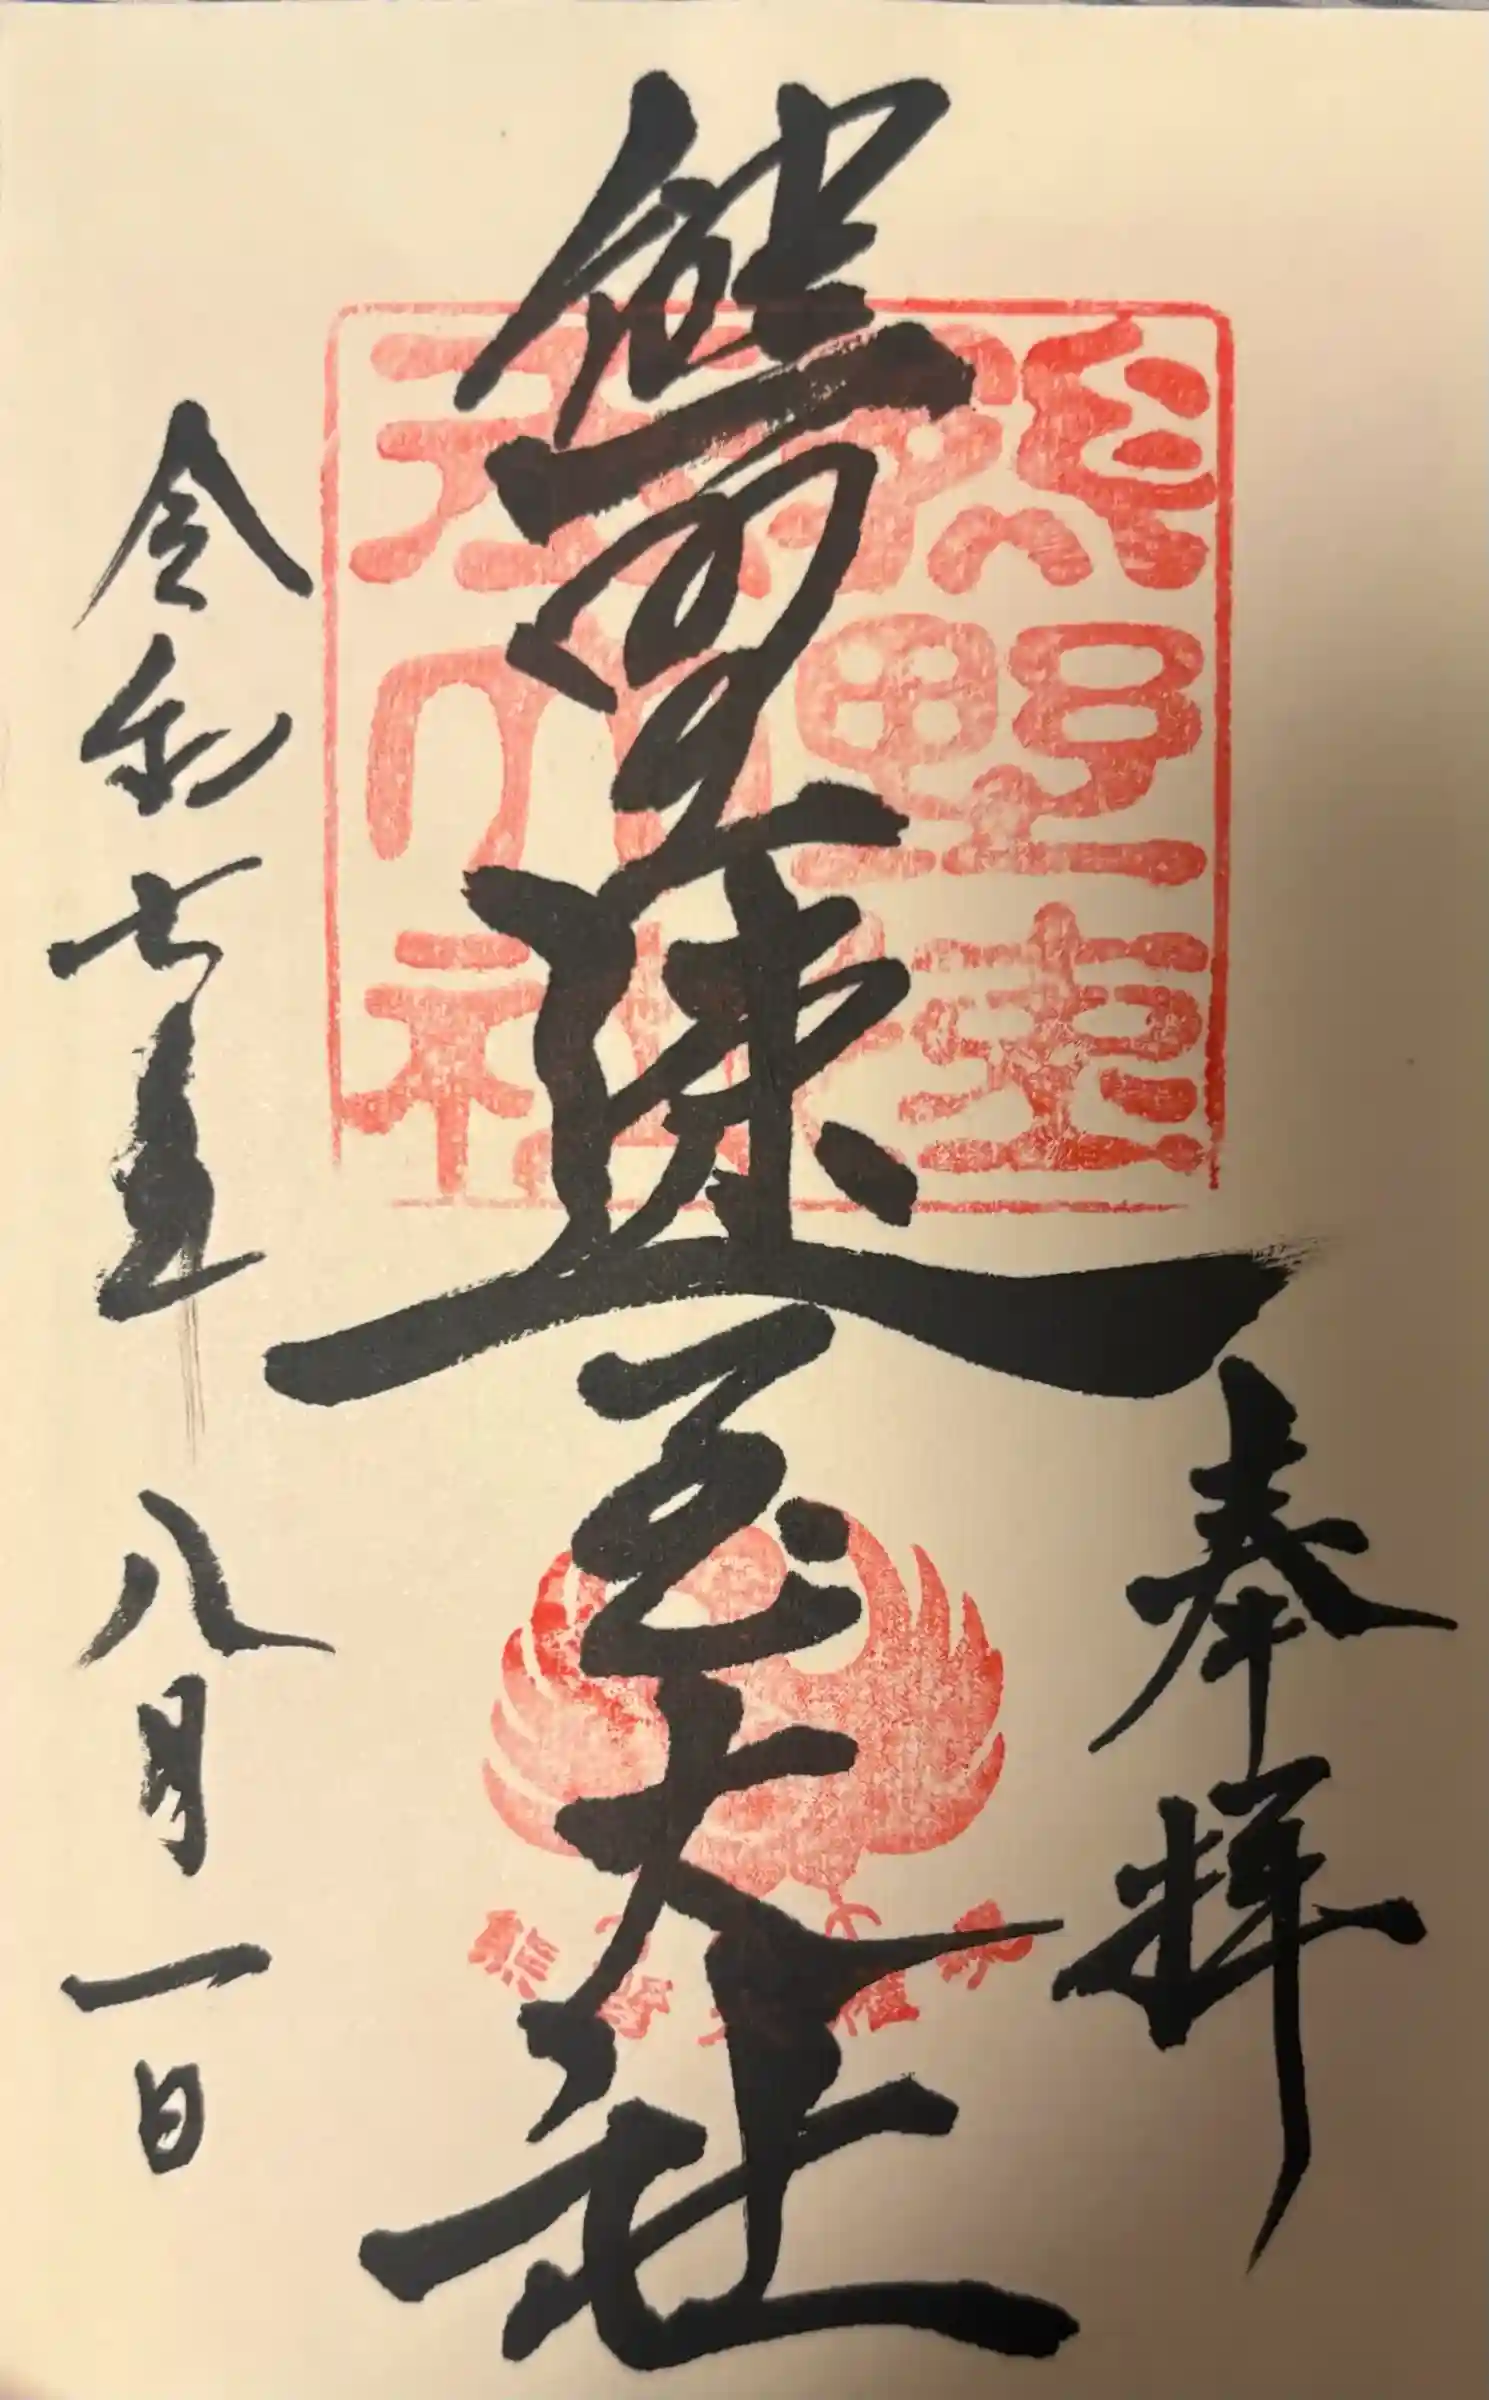 奉拝
熊野速玉大社
令和七年八月一日
熊野速玉大社